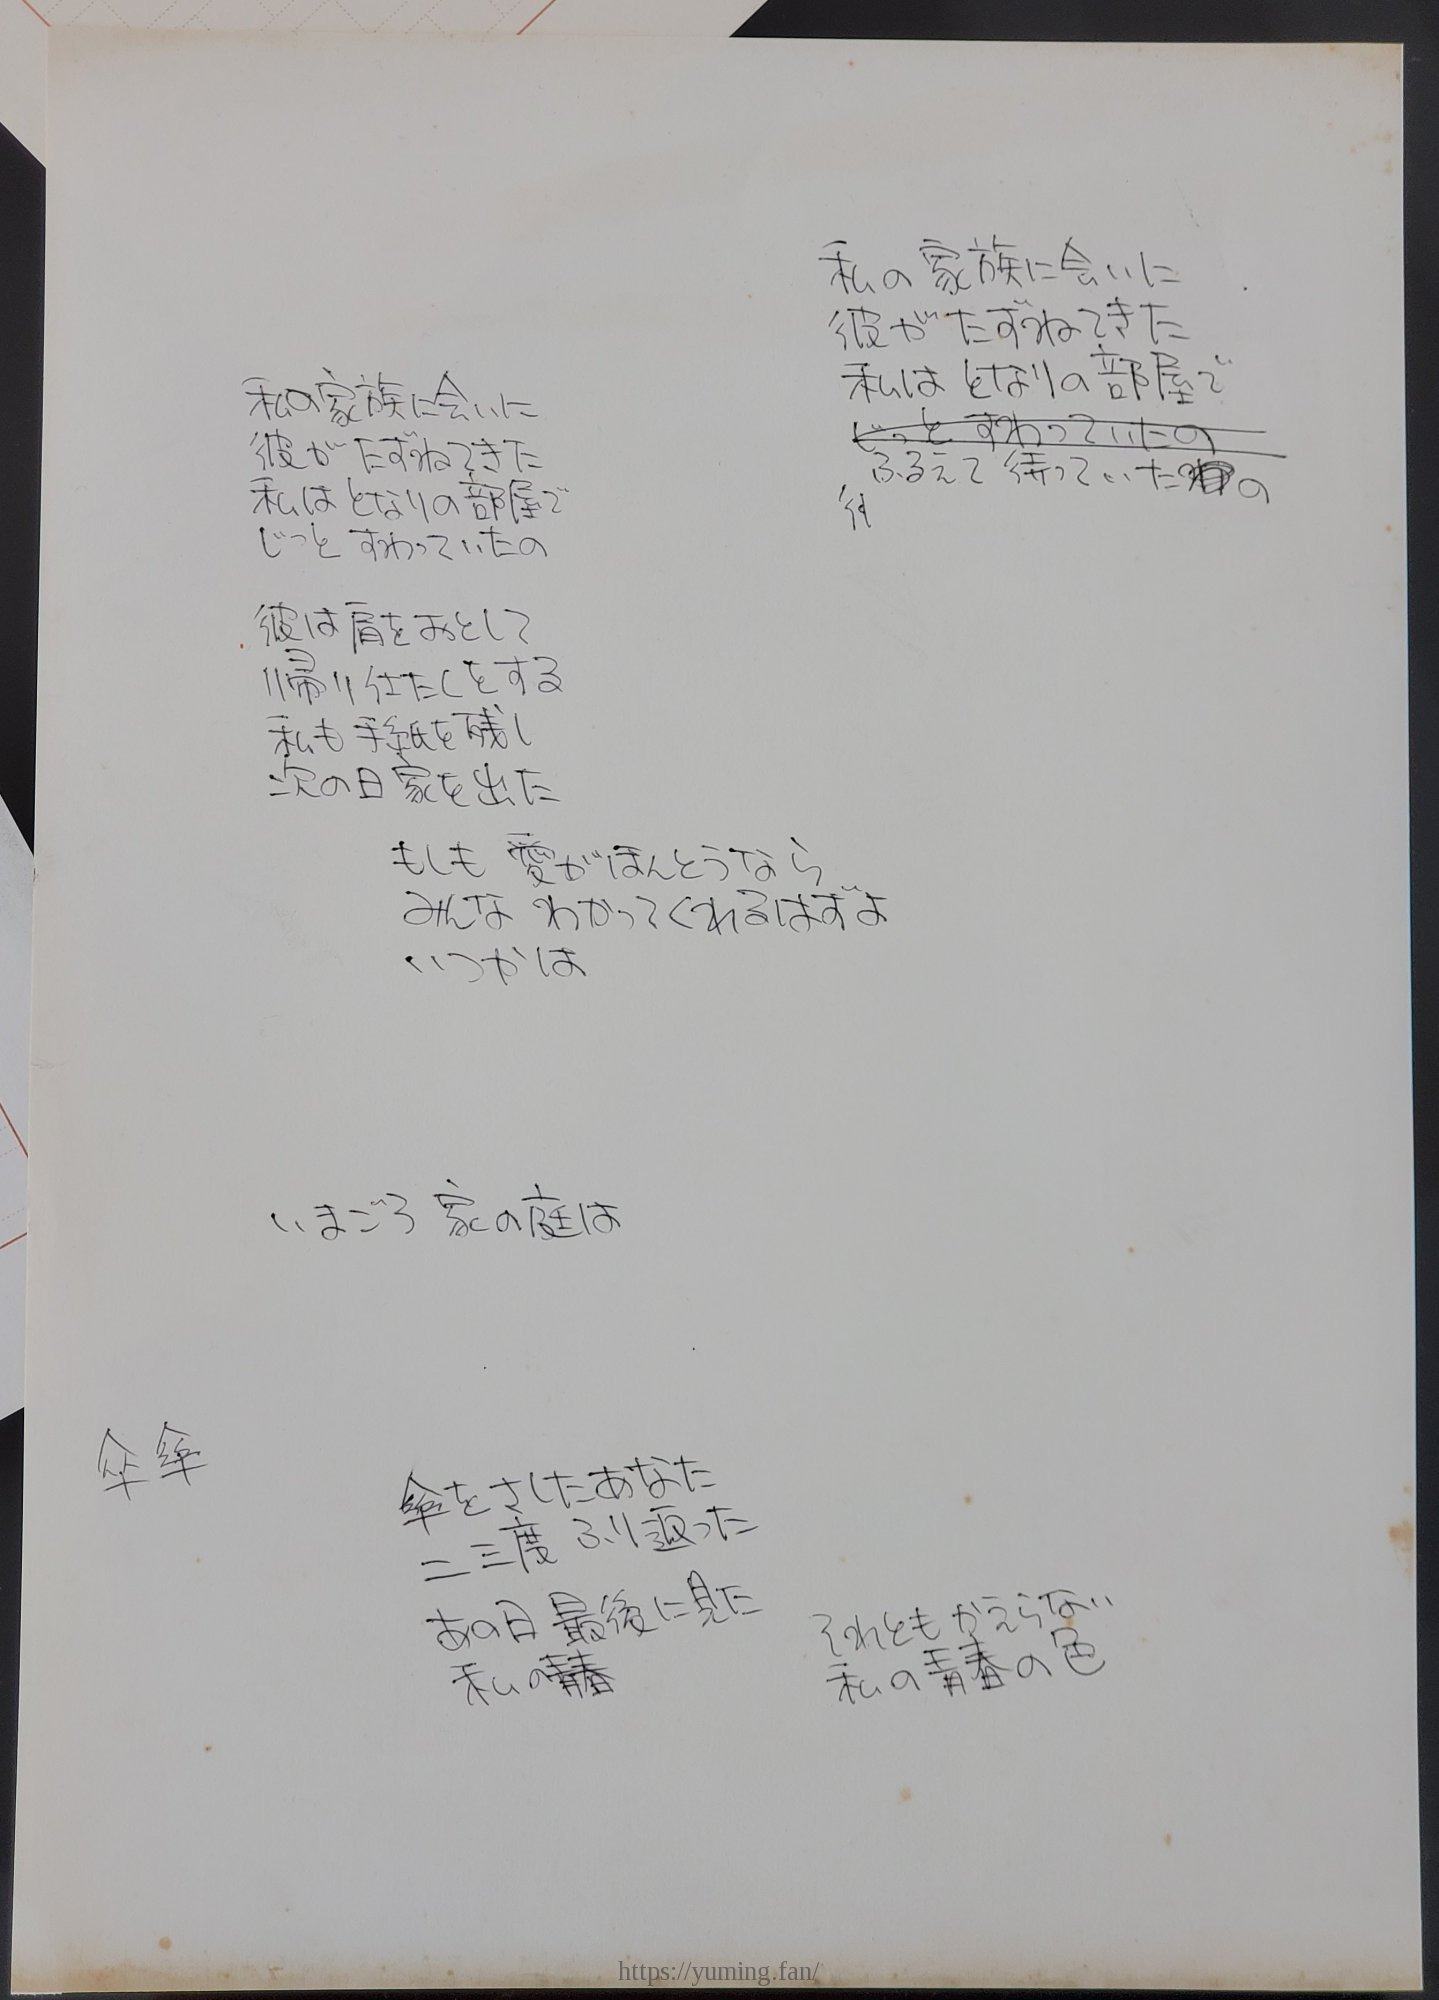 私の家族に会いに
彼がたずねてきた
私はとなりの部屋で
じっとすわっていたの
ふるえて待っていたの
私の家族に会いに
彼がたずねてきた
私はとなりの部屋で
じっとすわっていたの
彼は肩をおとして
帰り仕たくをする
私も手紙を残し
次の日家を出た
もしも 愛がほんとうなら
みんな わかってくれるはずよ
いつかは
いまごろ 家の庭は
傘 傘
傘をさしたあなた
二三度 ふり返った
あの日 最後に見た
私の青春
それとも かえらない
私の青春の色
https://yuming.fan/